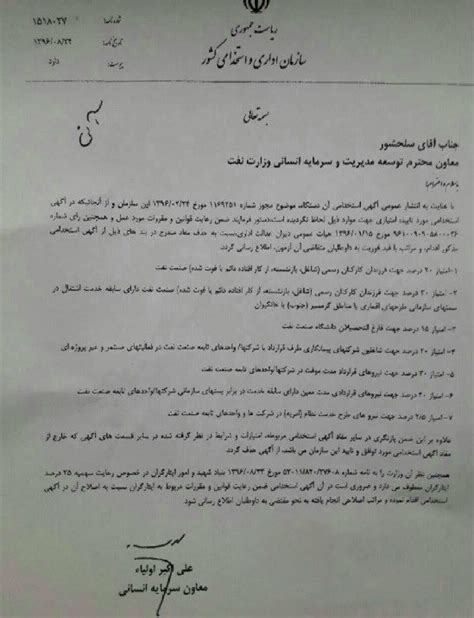 ریاست جمهوری
سازمان اداری و استخدامی کشور
شماره نامه: ۱۵۱۸۰۲۷
تاریخ نامه: ۱۳۹۶/۰۸/۲۴
پیوست: دارد
بسمه تعالی
جناب آقای سلحشور
معاون محترم توسعه مدیریت و سرمایه انسانی وزارت نفت
با سلام و احترام؛
با عنایت به انتشار عمومی آگهی استخدامی آن دستگاه، موضوع مجوز شماره ۱۱۶۹۲۵۱ مورخ ۱۳۹۶/۰۲/۲۴ این سازمان و از آنجائیکه در آگهی
استخدامی مورد تایید، امتیازی جهت موارد ذیل لحاظ نگردیده است، دستور فرمایند ضمن رعایت قوانین و مقررات مورد عمل و همچنین رای شماره
مورخ ۱۳۹۶/۰۱/۱۵ هیات عمومی دیوان عدالت اداری، نسبت به حذف مفاد مندرج در بند های ذیل از آگهی استخدامی
مذکور اقدام، و مراتب با قید فوریت به داوطلبان متقاضی آن آزمون، اطلاع رسانی گردد.
۱- امتیاز ۲۰ درصد جهت فرزندان کارکنان رسمی (شاغل، بازنشسته، از کار افتاده دائم یا فوت شده) صنعت نفت
۲- امتیاز ۳۰ درصد جهت فرزندان کارکنان رسمی (شاغل، بازنشسته، از کار افتاده دائم یا فوت شده) صنعت نفت دارای سابقه خدمت اشتغال در
سمتهای سازمانی طرحهای اقماری یا مناطق گرمسیر (جنوب) با خانگیران
۳- امتیاز ۱۵ درصد جهت فارغ التحصیلان دانشگاه صنعت نفت
۴- امتیاز ۲۰ درصد جهت شاغلین شرکتهای پیمانکاری طرف قرارداد با شرکتها/ واحدهای تابعه صنعت نفت در فعالیتهای مستمر و غیر پروژه ای
۵- امتیاز ۳۰ درصد جهت نیروهای قرارداد مدت موقت در شرکتها/واحدهای تابعه صنعت نفت
۶- امتیاز ۴۰ درصد جهت نیروهای قراردادی مدت معین دارای سابقه خدمت در برابر پستهای سازمانی شرکتها/واحدهای تابعه صنعت نفت
۷- امتیاز ۲/۵ درصد جهت نیرو های طرح خدمت نظام (امریه) در شرکت ها و واحدهای تابعه صنعت نفت
علاوه بر این ضمن بازنگری در سایر مفاد آگهی استخدامی مربوطه، امتیازات و شرایط در نظر گرفته شده در سایر قسمت های آگهی که خارج از
مفاد آگهی استخدامی مورد توافق و تایید این سازمان می باشد، از آگهی حذف گردد.
همچنین نظر آن وزارت را به نامه شماره مورخ ۱۳۹۶/۰۸/۲۳ بنیاد شهید و امور ایثارگران در خصوص رعایت سهمیه ۲۵ درصد
ایثارگران معطوف می دارد و ضروری است در آن آگهی استخدامی ضمن رعایت قوانین و مقررات مربوط به ایثارگران نسبت به اصلاح آن آگهی
استخدامی اقدام نموده و مراتب اصلاحی انجام یافته به نحو مقتضی به داوطلبان اطلاع رسانی شود.
علی اکبر اولیاء
معاون سرمایه انسانی